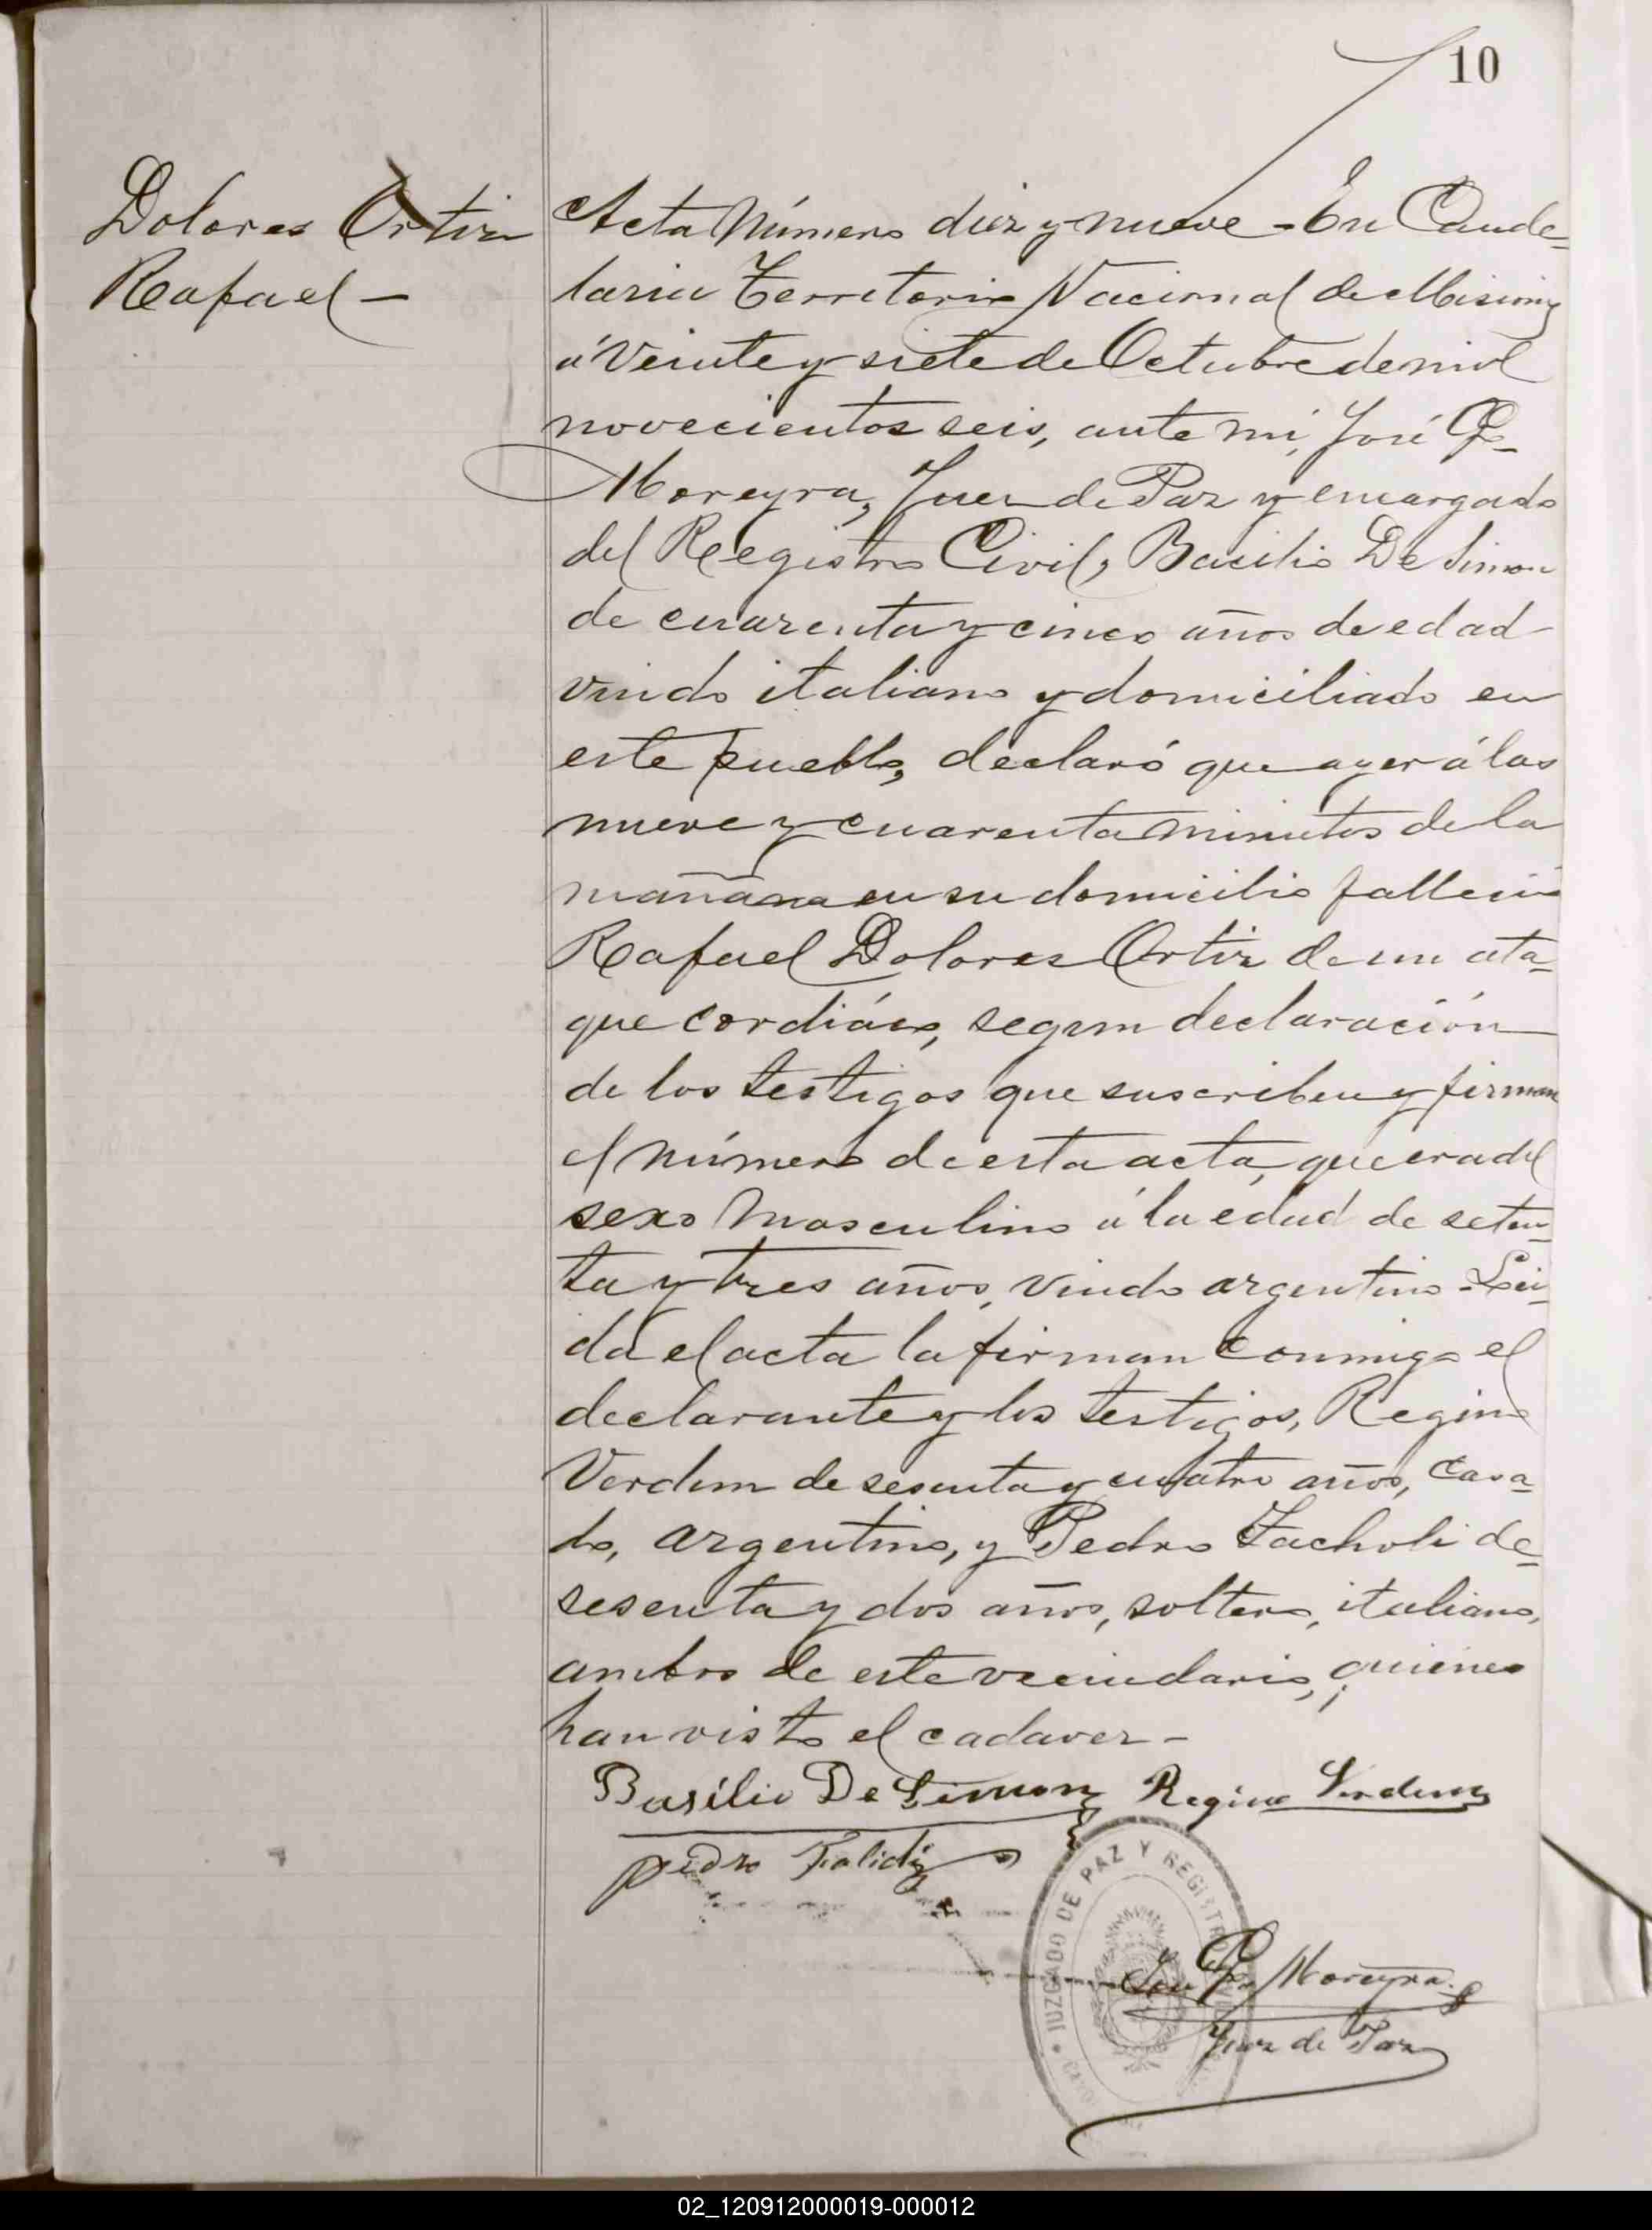 10
Dolores Ortiz
Rafael –
Acta Número diez y nueve – En Cande=
laria Territorio Nacional de Misiones
á veinte y siete de Octubre de mil
novecientos seis, ante mi, José
Moreyra, Juez de Paz y encargado
del Registro Civil, Bacilio De Simon
de cuarenta y cinco años de edad
viudo italiano y domiciliado en
este pueblo, declaró que ayer á las
nueve y cuarenta minutos de la
mañana en su domicilio falleció
Rafael Dolores Ortiz de un ata=
que cordiáco, segun declaración
de los testigos que suscriben y firman
el número de esta acta, que era del
sexo masculino á la edad de seten=
ta y tres años, viudo argentino – Lei=
da el acta la firman conmigo el
declarante y los testigos, Regino
Verdun de sesenta y cuatro años, casa=
do, argentino, y Pedro Zacholi de=
sesenta y dos años, soltero, italiano,
ambos de este vecindario, quienes
han visto el cadaver –
Basílio De Simon Regino Verdun
pedro
JUZGADO DE PAZ Y REGISTRO CIVIL
Moreyra
Juez de Paz
02_120912000019-000012